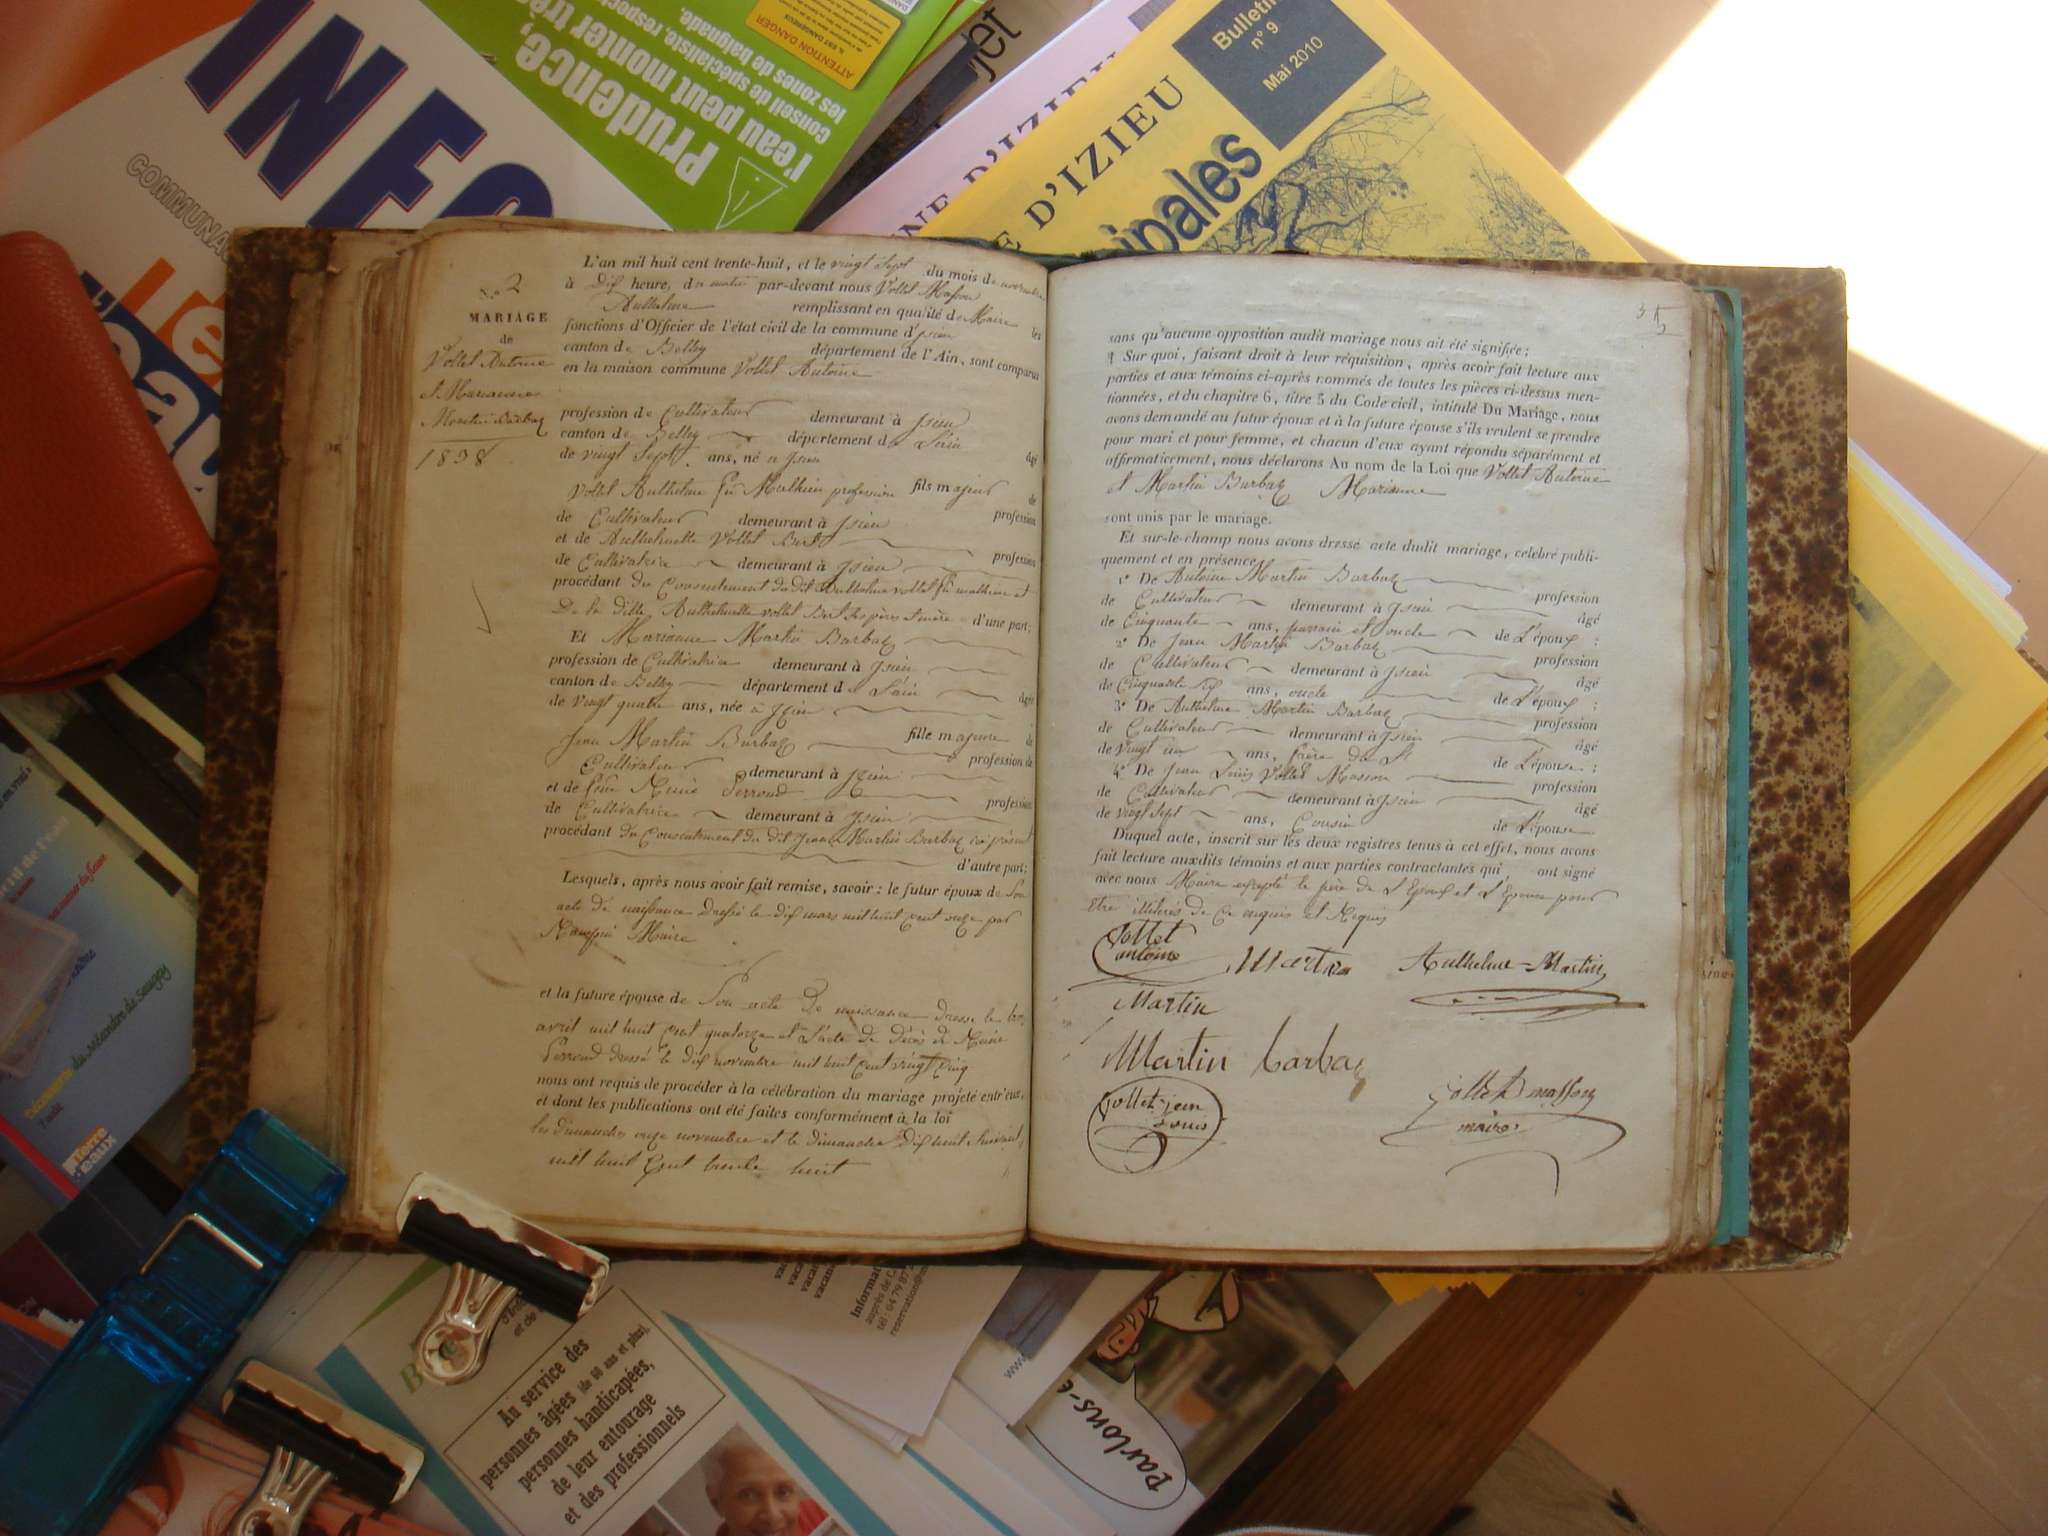 INFO
COMMUNA
Prudence,
l'eau peut monter très
conseil de spécialiste, respec
les zones de baignade.
ATTENTION DANGER
jet
NE D'IZIEU
E D'IZIEU
ipales
Bulletin
n° 9
Mai 2010
N.° 2
MARIAGE
de
Vollet Antoine
et Marianne
Martin Barbaz
1838
L'an mil huit cent trente-huit, et le vingt sept du mois de novembre
à dix heure, du matin par-devant nous Vollet Masson
Anthelme remplissant en qualité de Maire les
fonctions d'Officier de l'état civil de la commune d'Isieu
canton de Belley département de l'Ain, sont comparus
en la maison commune Vollet Antoine
profession de Cultivateur demeurant à Isieu
canton de Belley département de L'ain âgé
de vingt Sept ans, né à Isieu
fils majeur de
Vollet Anthelme feu Mathieu profession
de Cultivateur demeurant à Isieu profession
et de Anthelmette Vollet Bert
de Cultivatrice demeurant à Isieu profession
procédant du Consentement du dit Anthelme vollet feu mathieu et
De la ditte Anthelmette vollet Bert Ses père et mère d'une part;
Et Marianne Martin Barbaz
profession de Cultivatrice demeurant à Isieu
canton de Belley département de L'ain âgée
de vingt quatre ans, née à Izieu
fille majeure de
Jean Martin Barbaz profession de
Cultivateur demeurant à Izieu
et de feue Perroud profession
de Cultivatrice demeurant à Isieu
procédant du Consentement du dit Jean Martin Barbaz ici présent
d'autre part;
Lesquels, après nous avoir fait remise, savoir: le futur époux de Son
acte de naissance dressé le dix mars mil huit cent onze par
Maire
et la future épouse de Son acte De naissance dressé le
avril mil huit cent quatorze et L'acte de décès de
Perroud dressé le dix novembre mil huit cent vingt cinq
nous ont requis de procéder à la célébration du mariage projeté entr'eux,
et dont les publications ont été faites conformément à la loi
les dimanches onze novembre et le dimanche dix huit Suivant
mil huit Cent trente huit
35
sans qu'aucune opposition audit mariage nous ait été signifiée;
Sur quoi, faisant droit à leur réquisition, après avoir fait lecture aux
parties et aux témoins ci-après nommés de toutes les pièces ci-dessus men-
tionnées, et du chapitre 6, titre 5 du Code civil, intitulé Du Mariage, nous
avons demandé au futur époux et à la future épouse s'ils veulent se prendre
pour mari et pour femme, et chacun d'eux ayant répondu séparément et
affirmativement, nous déclarons Au nom de la Loi que Vollet Antoine
et Martin Barbaz Marianne
sont unis par le mariage.
Et sur-le-champ nous avons dressé acte dudit mariage, célébré publi-
quement et en présence
1° De Antoine Martin Barbaz profession
de Cultivateur demeurant à Isieu âgé
de Cinquante ans, parrain et oncle de L'époux :
2° De Jean Martin Barbaz profession
de Cultivateur demeurant à Isieu âgé
de Cinquante Six ans, oncle de L'époux :
3° De Anthelme Martin Barbaz profession
de Cultivateur demeurant à Isieu âgé
de Vingt un ans, frère de L'épouse :
4° De Jean Louis Vollet Masson profession
de Cultivateur demeurant à Isieu âgé
de vingt Sept ans, Cousin de L'épouse
Duquel acte, inscrit sur les deux registres tenus à cet effet, nous avons
fait lecture auxdits témoins et aux parties contractantes qui ont signé
avec nous Maire excepté le père de L'Epoux et L'Epouse pour
Etre illitérés de Ce enquis et Requis
Vollet
antoine
Martin
Anthelme Martin
Martin
Martin barbaz
vollet jean
louis
Vollet masson
maire
Découverte du méandre de seugey
TERRE
d'EAUX
Au service des
personnes âgées (de 60 ans et plus),
personnes handicapées,
de leur entourage
et des professionnels
vaca
Informat
auprès de
tél : 04 79 87
reservation@
www.
Parlons-e